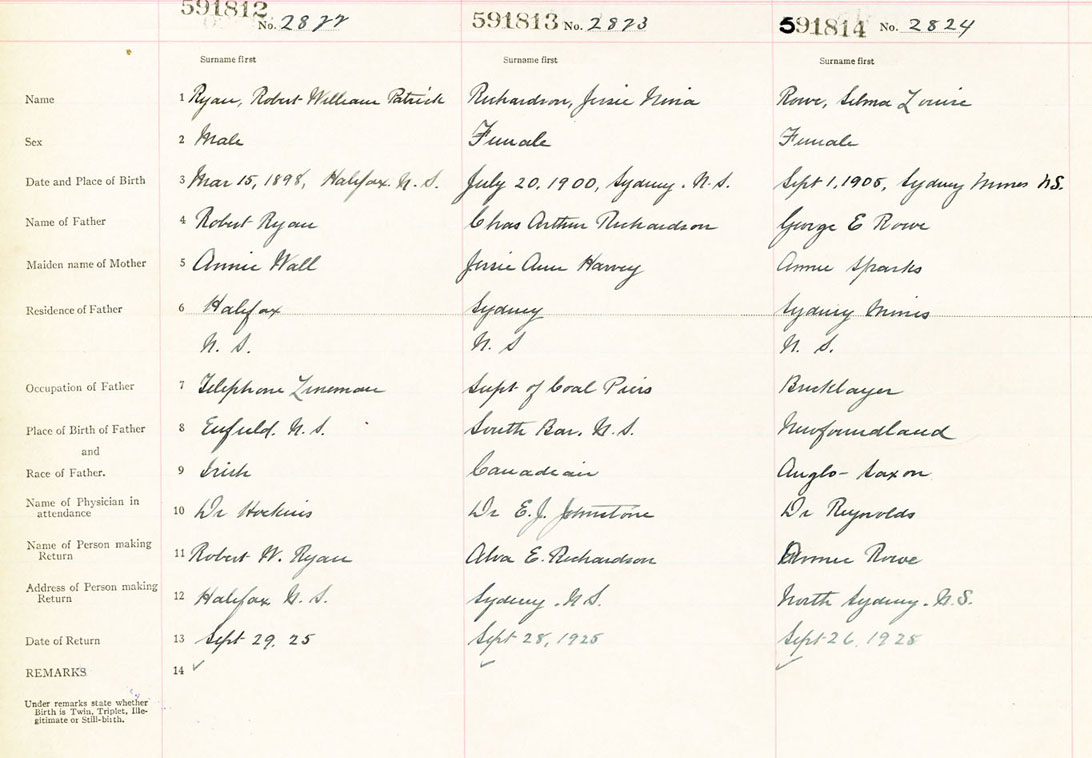 591812 No. 2822 591813 No. 2823 591814 No. 2824
Surname first Surname first Surname first
Name 1 Ryan, Robert William Patrick Richardson, Jessie Nina Rowe, Selma Louise
Sex 2 Male Female Female
Date and Place of Birth 3 Mar 15, 1898, Halifax. N. S. July 20, 1900, Sydney. N. S. Sept 1, 1905, Sydney Mines N.S.
Name of Father 4 Robert Ryan Chas Arthur Richardson George E Rowe
Maiden name of Mother 5 Annie Wall Jessie Ann Harvey Annie Sparks
Residence of Father 6 Halifax Sydney Sydney Mines
N. S. N. S N. S.
Occupation of Father 7 Telephone Lineman Supt of Coal Piers Bricklayer
Place of Birth of Father 8 Enfield. N. S. South Bar. N. S. Newfoundland
and
Race of Father. 9 Irish Canadian Anglo-Saxon
Name of Physician in
attendance 10 Dr Hockins Dr E. J. Johnstone Dr Reynolds
Name of Person making
Return 11 Robert W. Ryan Alva E. Richardson Annie Rowe
Address of Person making
Return 12 Halifax N. S. Sydney. N. S. North Sydney. N. S.
Date of Return 13 Sept 29. 25 Sept 28, 1925 Sept 26, 1925
REMARKS 14
Under remarks state whether
Birth is Twin, Triplet, Ille-
gitimate or Still-birth.